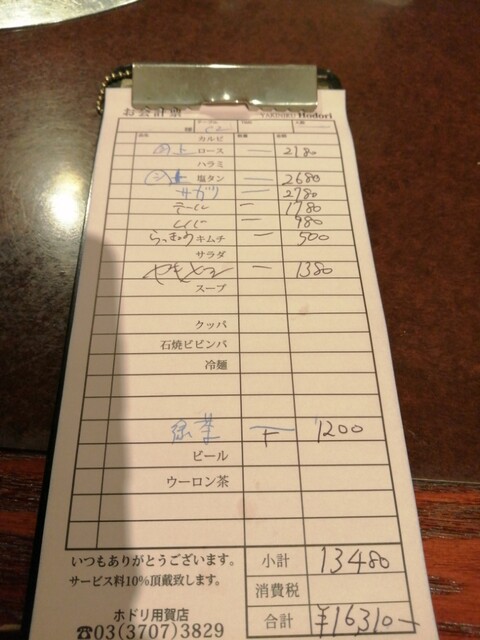 お会計票 YAKINIKU Hodori
カルビ
上 ロース 一 2180
ハラミ
上 塩タン 一 2680
サガリ 一 2780
テール 一 1780
レバー 一 980
らっきょうキムチ 一 500
サラダ
一 1380
スープ
クッパ
石焼ビビンバ
冷麺
緑茶 T 1200
ビール
ウーロン茶
いつもありがとうございます。 小計 13480
サービス料10%頂戴致します。 消費税
ホドリ用賀店 合計 ¥16310-
☎03(3707)3829